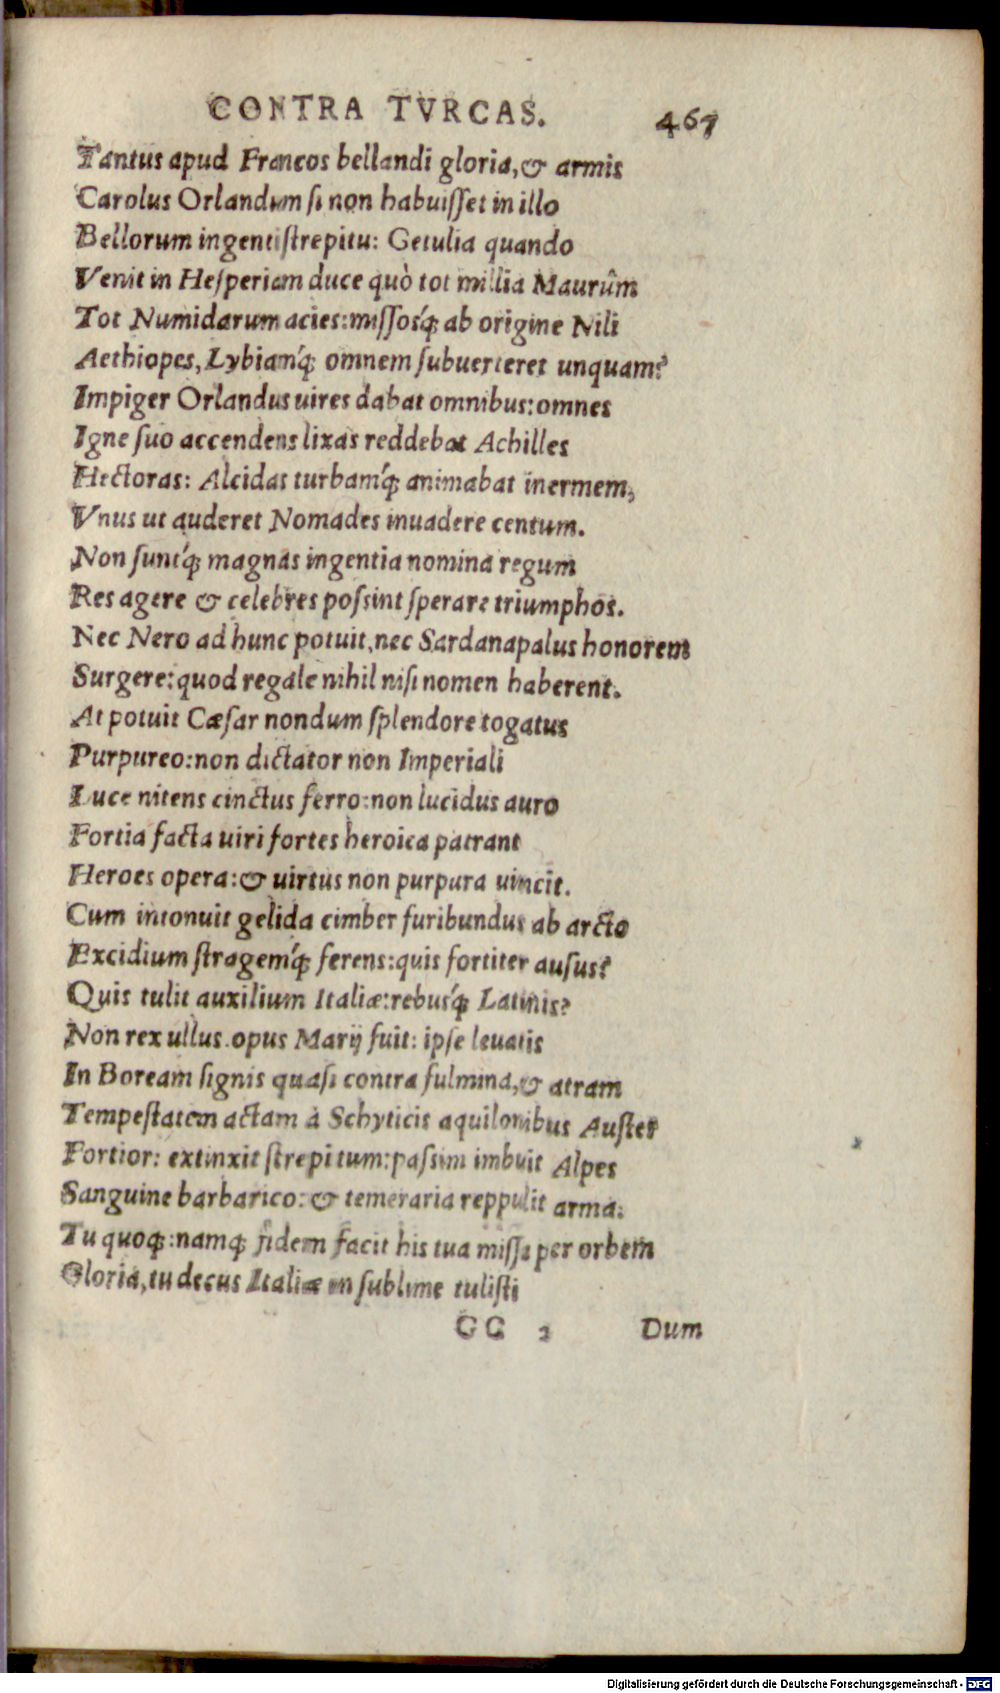 CONTRA TVRCAS. 467
Tantus apud Francos bellandi gloria, & armis
Carolus Orlandum si non habuiſſet in illo
Bellorum ingenti ſtrepitu: Getulia quando
Venit in Heſperiam duce quò tot millia Maurûm
Tot Numidarum acies: miſſosq́ꝫ ab origine Nili
Aethiopes, Lybiamq́ꝫ omnem ſubuerteret unquam?
Impiger Orlandus uires dabat omnibus: omnes
Igne ſuo accendens lixas reddebat Achilles
Hectoras: Alcidas turbamq́ꝫ animabat inermem,
Vnus ut auderet Nomades inuadere centum.
Non ſuntq́ꝫ magnas ingentia nomina regum
Res agere & celebres poſsint ſperare triumphos.
Nec Nero ad hunc potuit, nec Sardanapalus honorem
Surgere: quod regale nihil niſi nomen haberent.
At potuit Cæſar nondum ſplendore togatus
Purpureo: non dictator non Imperiali
Luce nitens cinctus ferro: non lucidus auro
Fortia facta uiri fortes heroica patrant
Heroes opera: & uirtus non purpura uincit.
Cum intonuit gelida cimber furibundus ab arcto
Excidium ſtragemq́ꝫ ferens: quis fortiter auſus?
Quis tulit auxilium Italiæ: rebusq́ꝫ Latinis?
Non rex ullus. opus Marij fuit: ipſe leuatis
In Boream ſignis quaſi contra fulmina, & atram
Tempeſtatem actam à Schyticis aquilonibus Auſter
Fortior: extinxit ſtrepitum: paſsim imbuit Alpes
Sanguine barbarico: & temeraria reppulit arma:
Tu quoqꝫ: namqꝫ fidem facit his tua miſſa per orbem
Gloria, tu decus Italiæ in ſublime tuliſti
GG 2 Dum
Digitalisierung gefördert durch die Deutsche Forschungsgemeinschaft - DFG